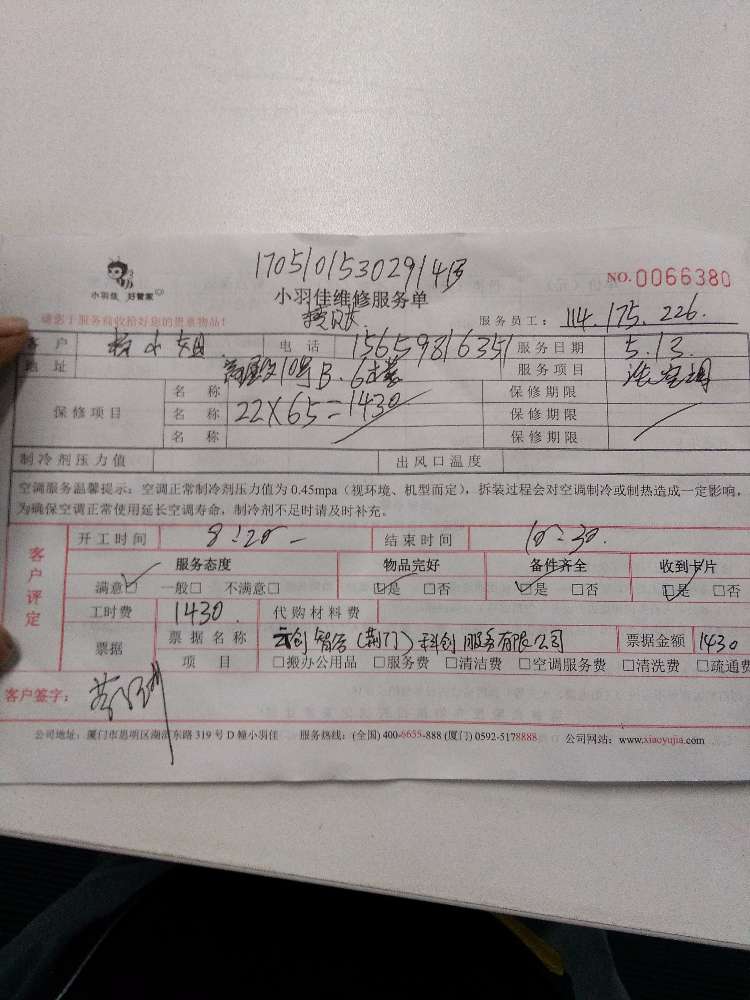 17051015302914B
小羽佳 好管家
小羽佳维修服务单
NO.0066380
请您于服务前收拾好您的贵重物品!
服务员工: 114.175.226.
客户 小姐 电话 15659816351 服务日期 5.13
地址 10号B. 6楼 服务项目 洗空调
保修项目 名称 22X65=1430 保修期限
名称 保修期限
名称 保修期限
制冷剂压力值 出风口温度
空调服务温馨提示:空调正常制冷剂压力值为0.45mpa(视环境、机型而定),拆装过程会对空调制冷或制热造成一定影响,
为确保空调正常使用延长空调寿命,制冷剂不足时请及时补充。
客户评定
开工时间 8:20 结束时间 10:30.
服务态度 物品完好 备件齐全 收到卡片
满意□ 一般□ 不满意□ □是 □否 □是 □否 □是 □否
工时费 1430. 代购材料费
票据 票据名称 云创智谷(荆门)科创服务有限公司 票据金额 1430
项目 □搬办公用品 □服务费 □清洁费 □空调服务费 □清洗费 □疏通费
客户签字:
公司地址:厦门市思明区湖滨东路319号D幢小羽佳 服务热线:(全国)400-6655-888 (厦门)0592-5178888 公司网站:www.xiaoyujia.com